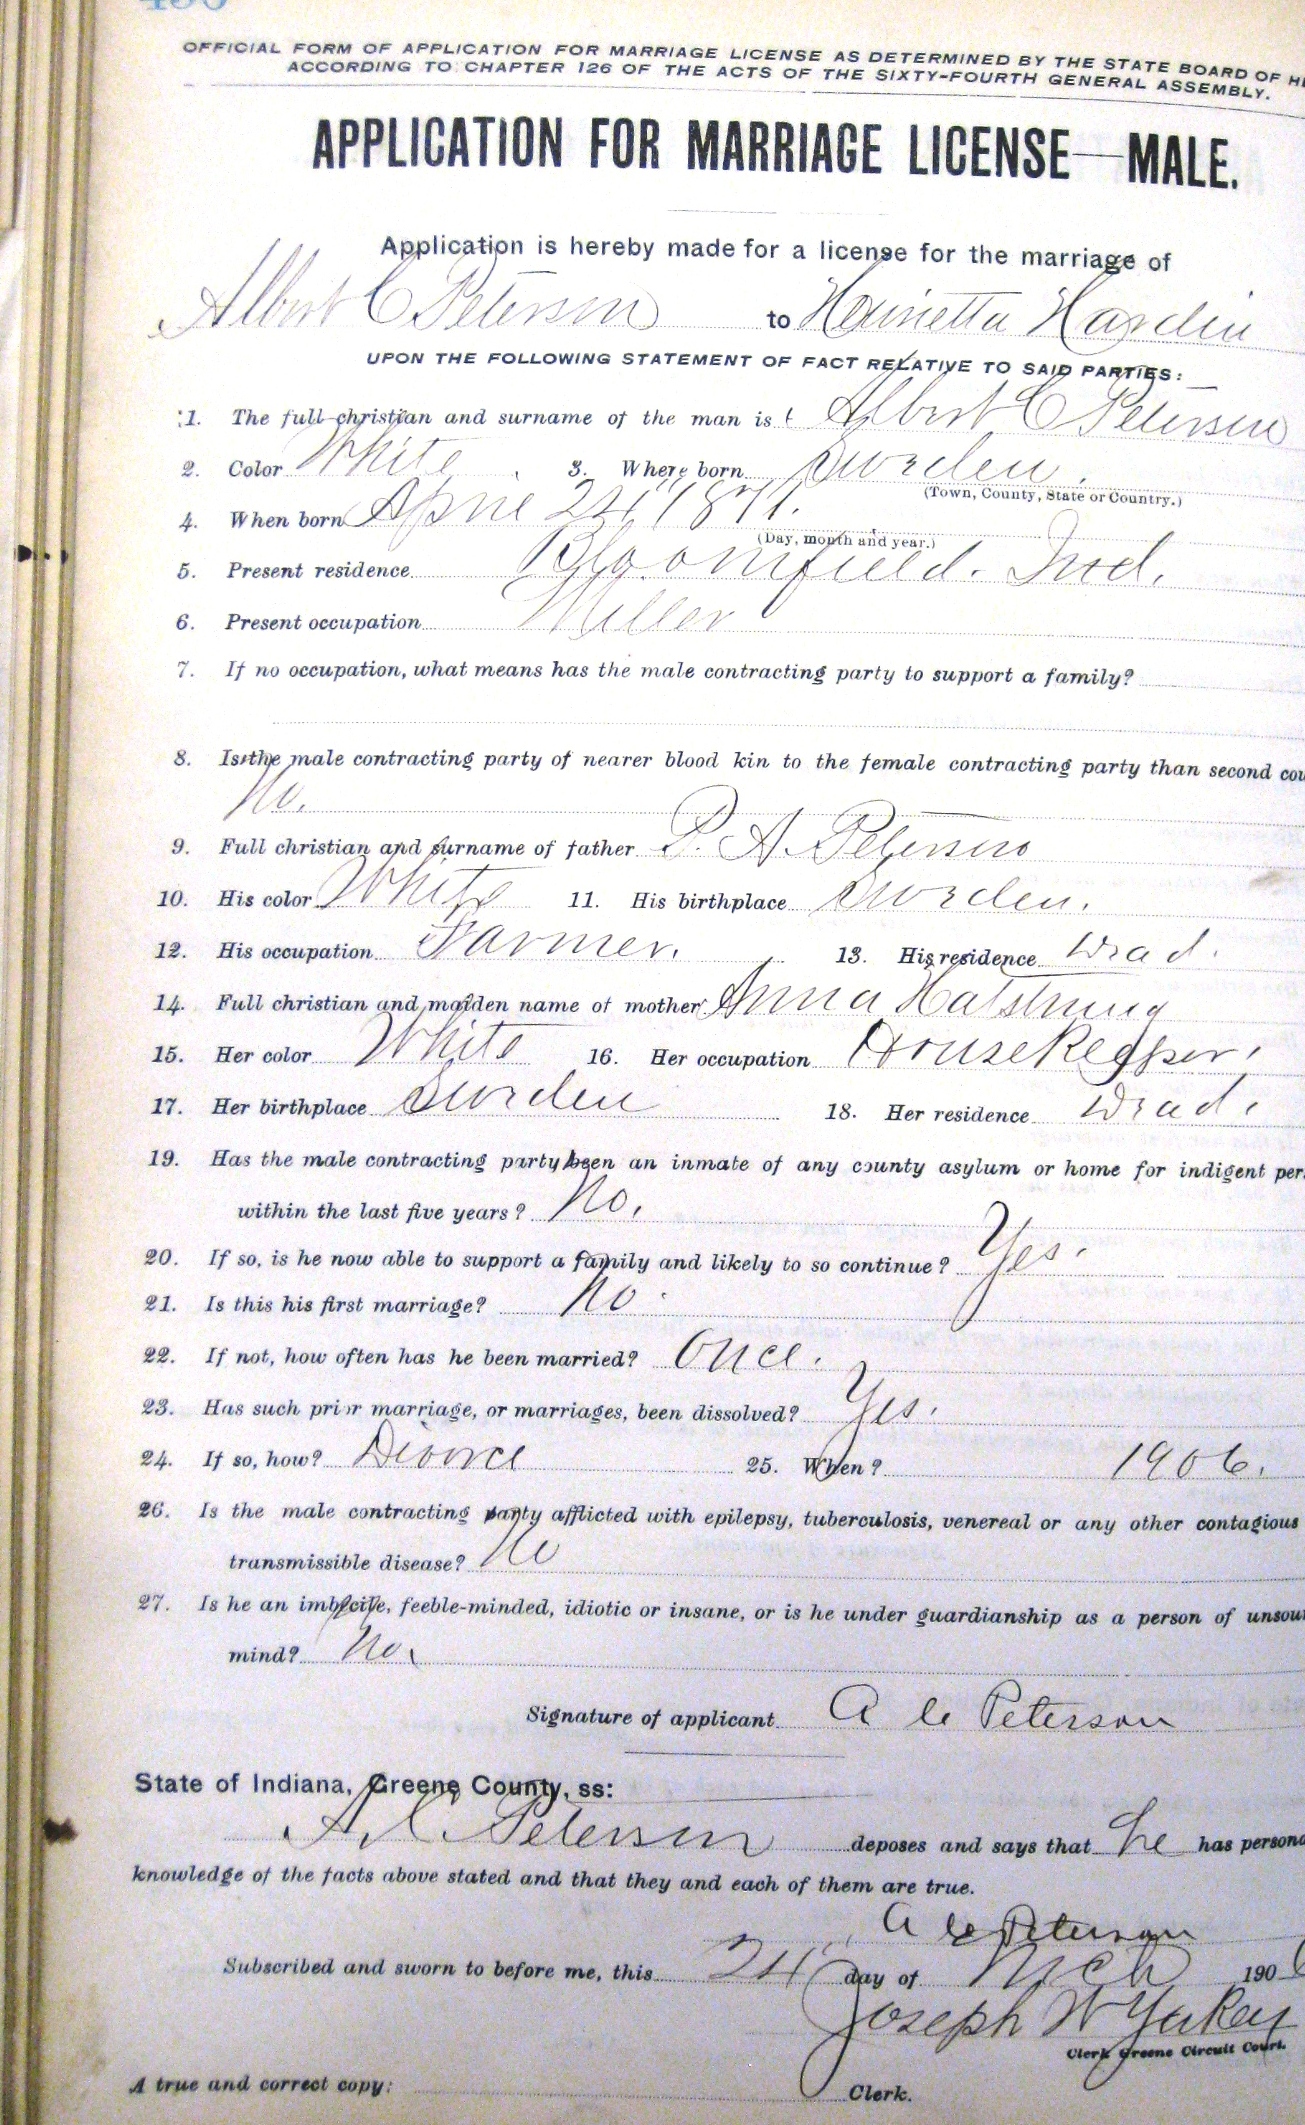 OFFICIAL FORM OF APPLICATION FOR MARRIAGE LICENSE AS DETERMINED BY THE STATE BOARD OF HE
ACCORDING TO CHAPTER 126 OF THE ACTS OF THE SIXTY-FOURTH GENERAL ASSEMBLY.
APPLICATION FOR MARRIAGE LICENSE—MALE.
Application is hereby made for a license for the marriage of
Albert C Peterson to Henrietta Hardin
UPON THE FOLLOWING STATEMENT OF FACT RELATIVE TO SAID PARTIES:
1. The full christian and surname of the man is Albert C Peterson
2. Color White. 3. Where born Sweden.
(Town, County, State or Country.)
4. When born April 24" 1871.
(Day, month and year.)
5. Present residence Bloomfield. Ind.
6. Present occupation Miller
7. If no occupation, what means has the male contracting party to support a family?
8. Is the male contracting party of nearer blood kin to the female contracting party than second cou
No.
9. Full christian and surname of father P. A. Peterson
10. His color White 11. His birthplace Sweden.
12. His occupation Farmer. 13. His residence Dead.
14. Full christian and maiden name of mother Anna
15. Her color White 16. Her occupation Housekeeper.
17. Her birthplace Sweden 18. Her residence Dead.
19. Has the male contracting party been an inmate of any county asylum or home for indigent per
within the last five years? No.
20. If so, is he now able to support a family and likely to so continue? Yes.
21. Is this his first marriage? No.
22. If not, how often has he been married? Once.
23. Has such prior marriage, or marriages, been dissolved? Yes.
24. If so, how? Divorce 25. When? 1906.
26. Is the male contracting party afflicted with epilepsy, tuberculosis, venereal or any other contagious
transmissible disease? No
27. Is he an imbecile, feeble-minded, idiotic or insane, or is he under guardianship as a person of unsou
mind? No.
Signature of applicant A C Peterson
State of Indiana, Greene County, ss:
A. C. Peterson deposes and says that he has persona
knowledge of the facts above stated and that they and each of them are true.
A C Peterson
Subscribed and sworn to before me, this 24" day of Mch 190
Joseph W Yakey
Clerk Greene Circuit Court.
A true and correct copy: Clerk.